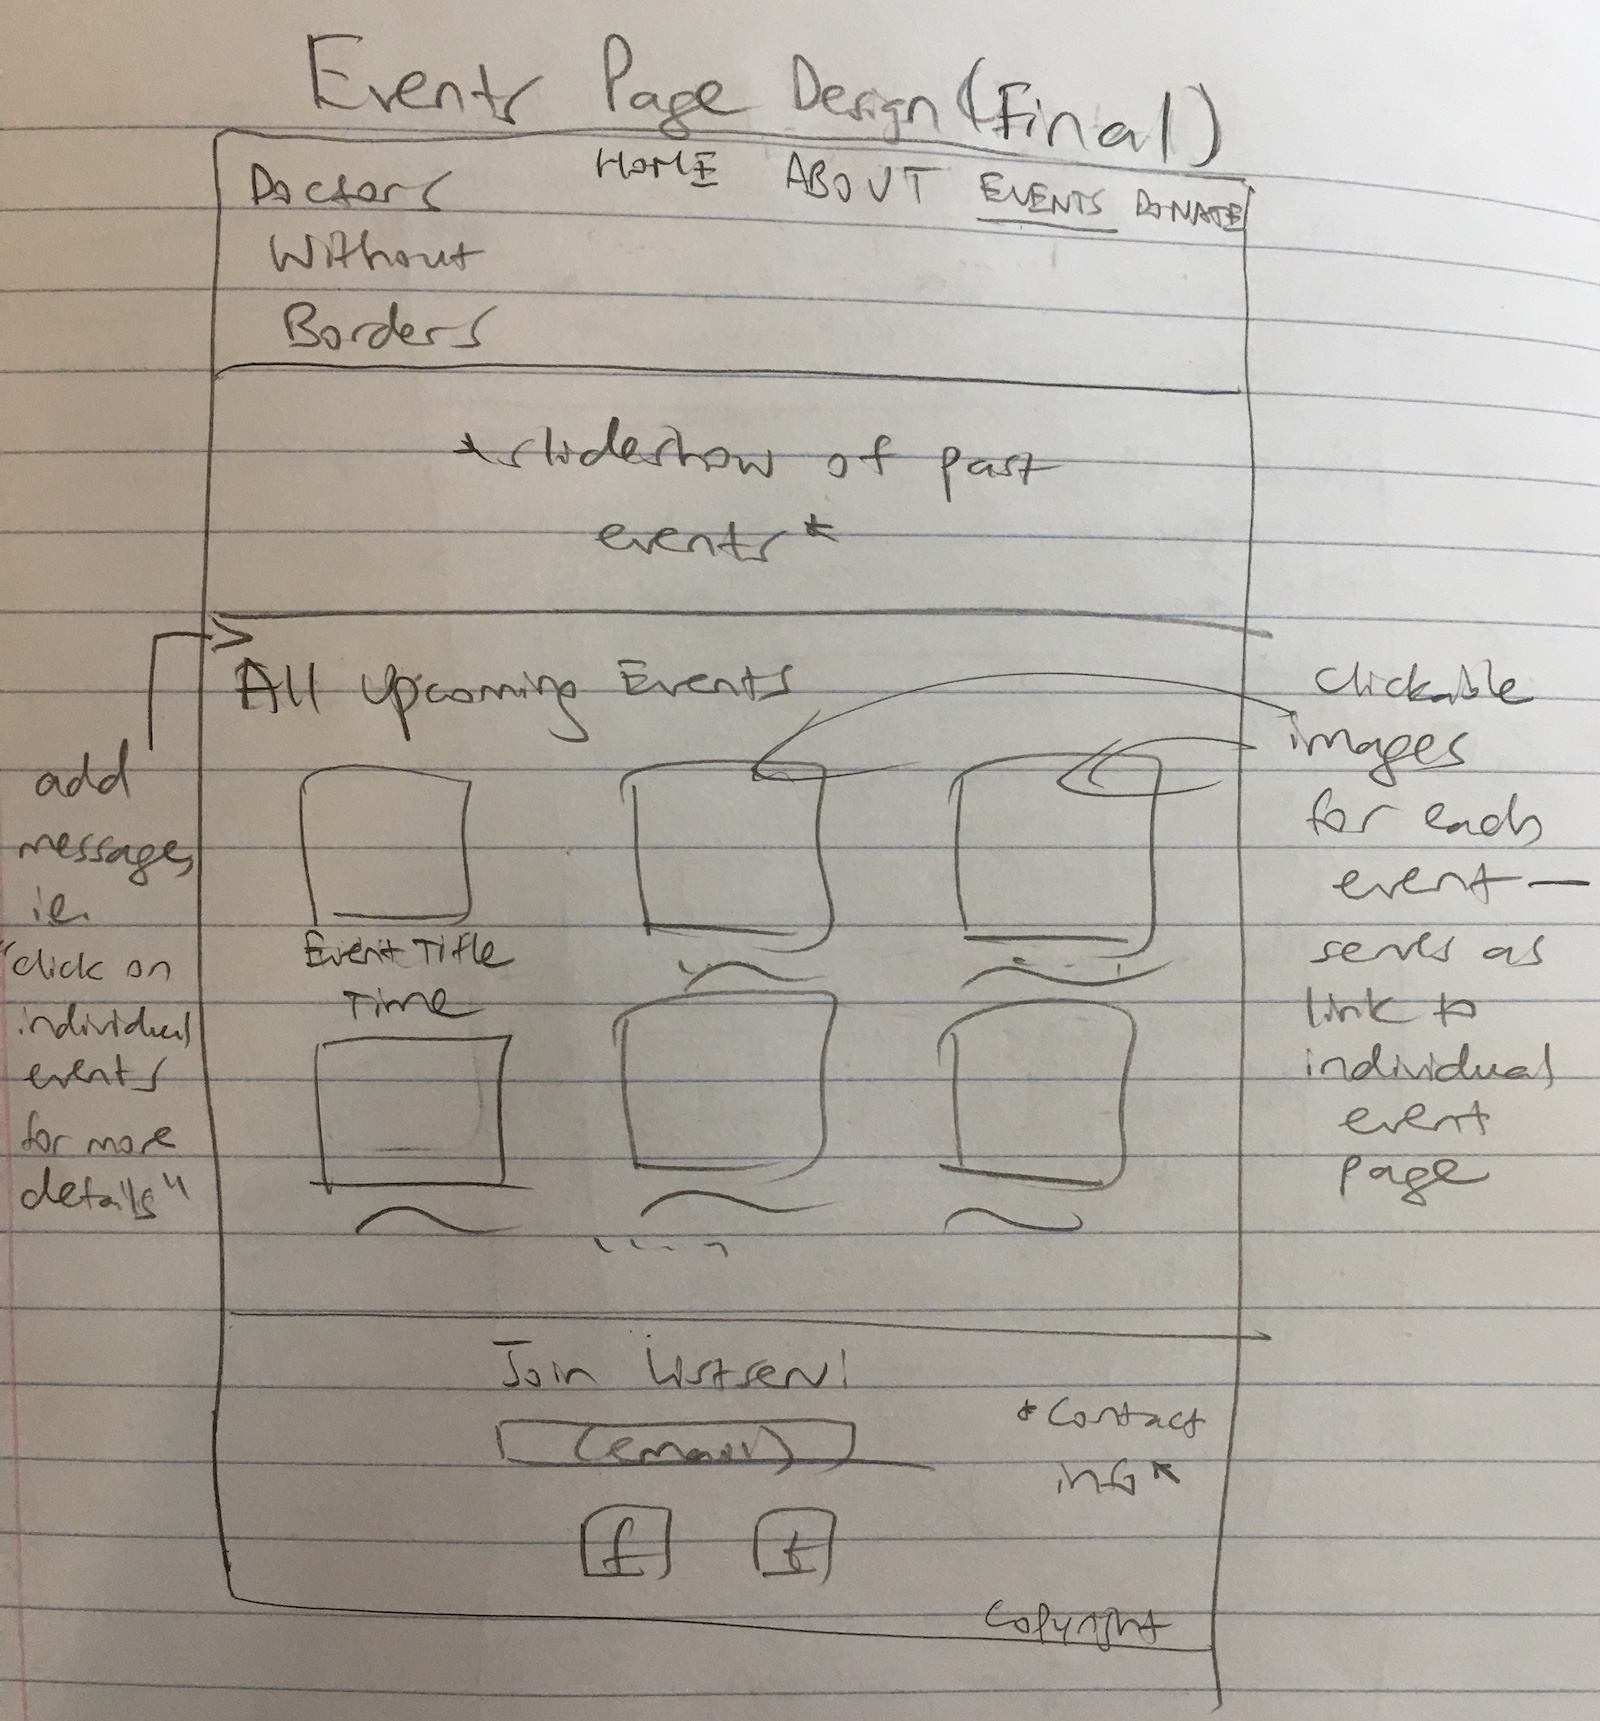 Events Page Design (Final)
Doctors
Without
Borders
HOME ABOUT EVENTS DONATE
*slideshow of past
events*
All Upcoming Events
add
message,
i.e.
"click on
individual
events
for more
details"
clickable
images
for each
event —
serves as
link to
individual
event
page
Event Title
Time
Join Listserv!
(email)
*Contact
info*
f t
Copyright